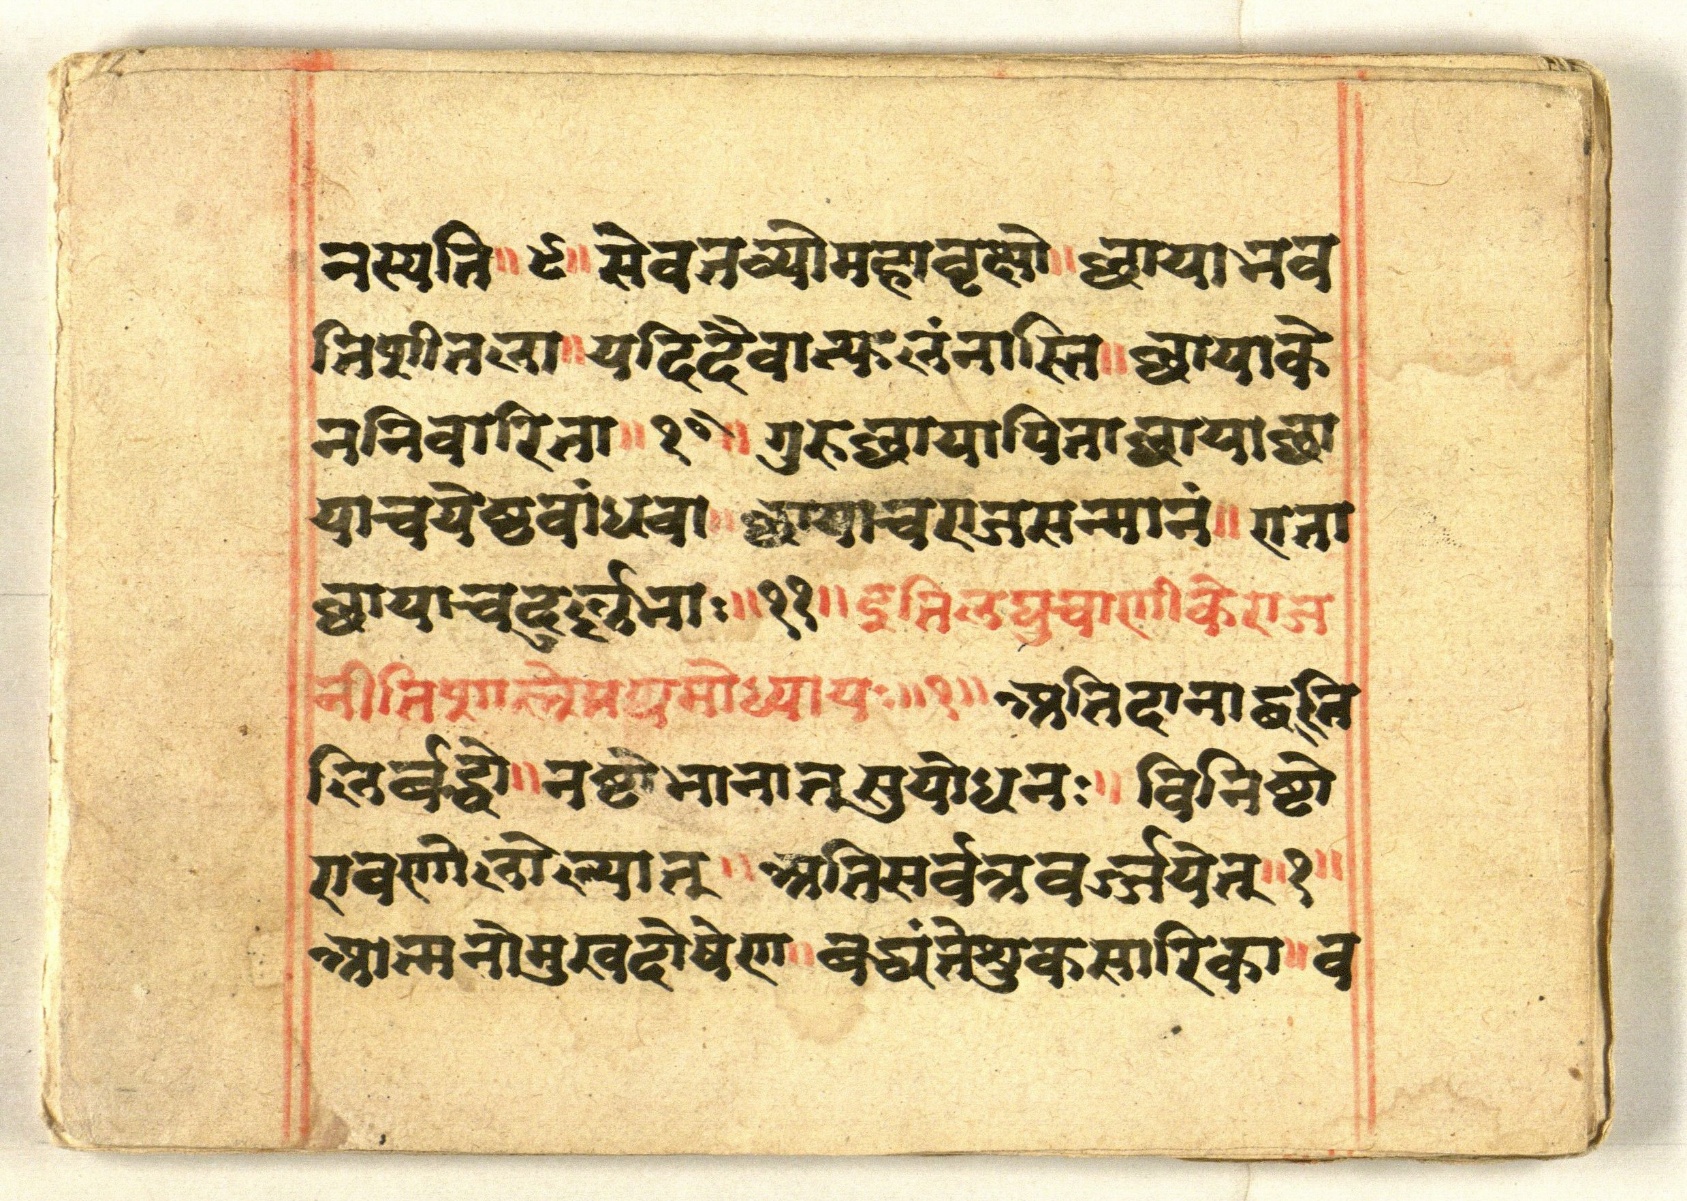 नस्यति॥९॥सेवनव्योमहावृक्षो॥छायाभव
तिशीतला॥यदिदैवात्फलंनास्ति॥छायाके
ननिवारिता॥१०॥गुरुछायापिताछायाछा
याचयेष्ठवांधवा॥छायाचराजसन्मानं॥राता
छायाचदुर्ल्लभाः॥११॥इतिलघुचाणीकेराज
नीतिशास्त्रेप्रथमोध्यायः॥१॥अतिदानाद्वलि
र्बद्धो॥नष्टोमानात्सुयोधनः॥विनिष्टो
रावणोलोल्यात्॥अतिसर्वत्रवर्ज्जयेत्॥१॥
आत्मनोमुखदोषेण॥बद्ध्यंतेशुकसारिका॥व